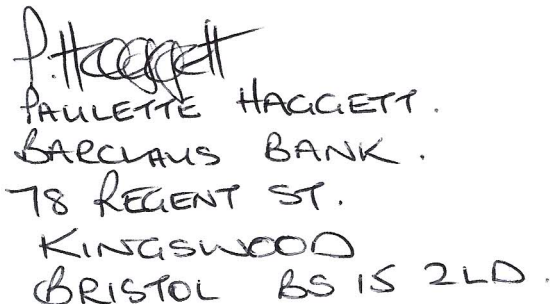 P. Haggett
PAULETTE HAGGETT.
BARCLAYS BANK.
78 REGENT ST.
KINGSWOOD
BRISTOL BS15 2LD.